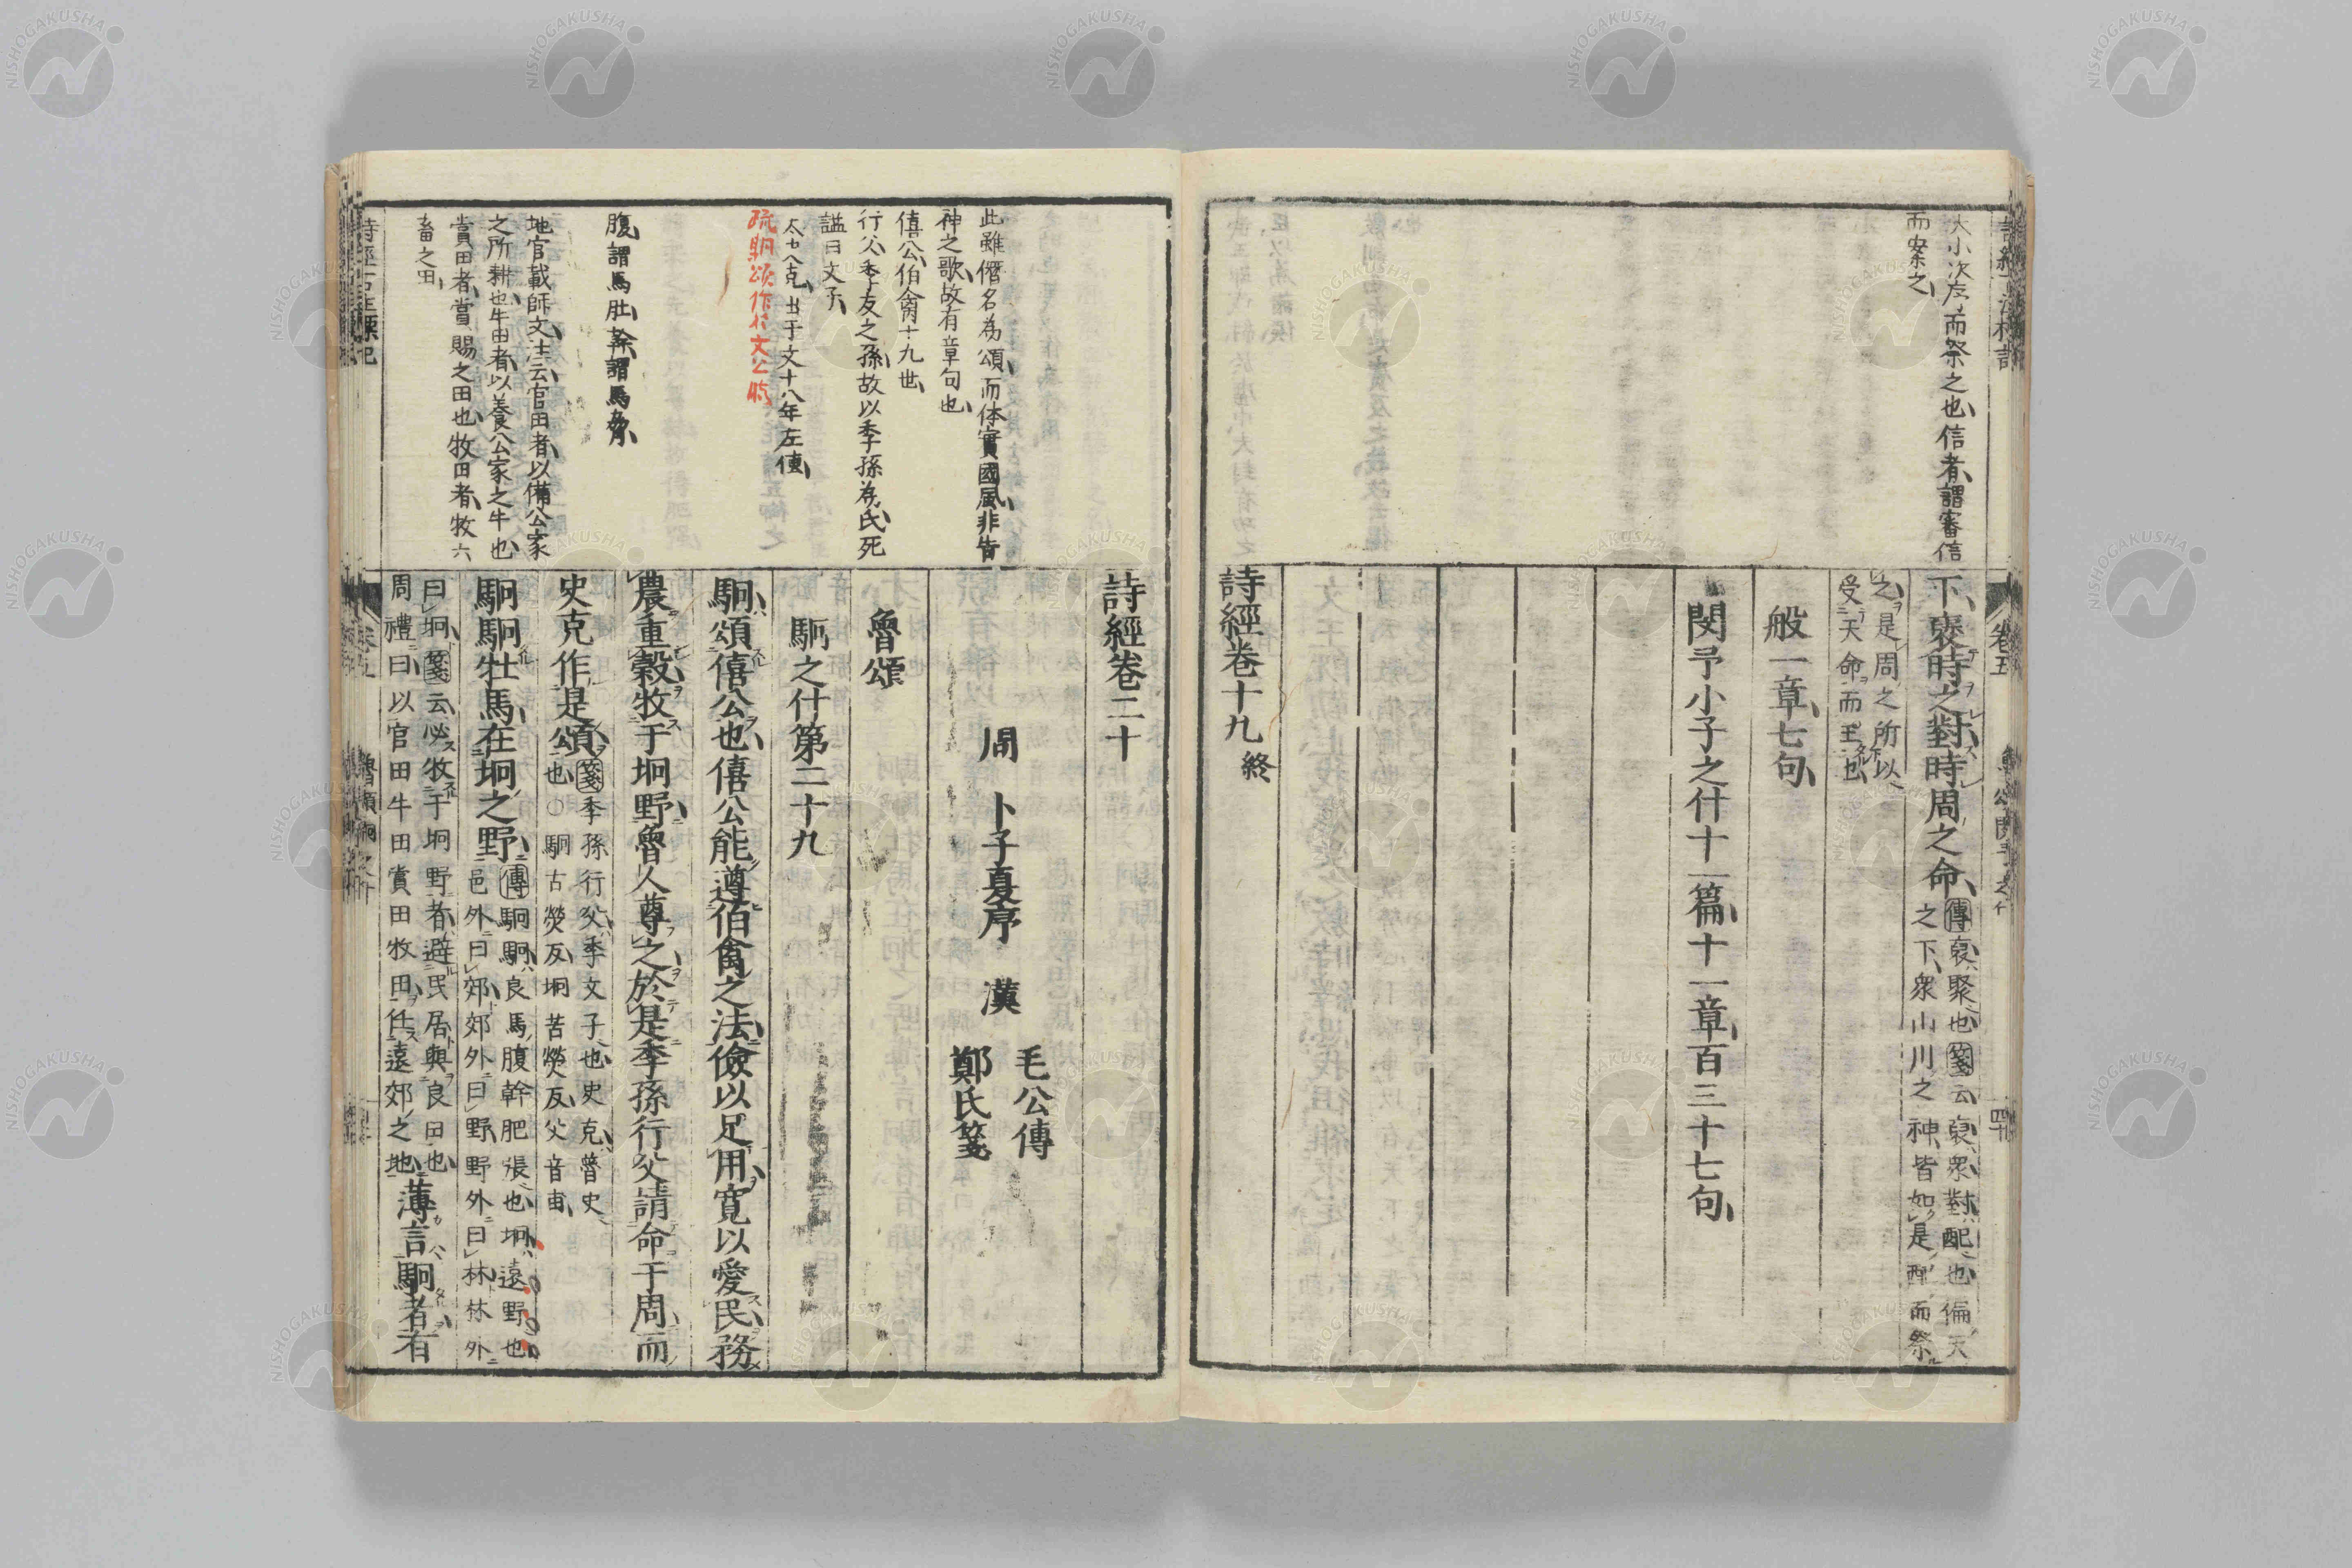 大小次序而祭之也信者謂審信
而案之
下裒時之對時周之命傳裒聚也箋云裒衆對配也徧天
之下衆山川之神皆如是配而祭
之是周之所以
受天命而王也
般一章七句
閔予小子之什十一篇十一章百三十七句
詩經卷十九終
卷五
此雖僭名為頌而体實國風非告
神之歌故有章句也
僖公伯禽十九世
行父季友之孫故以季孫為氏死
諡曰文子
太史克出于文十八年左傳
疏駉頌作於文公時
腹謂馬肚幹謂馬脅
地官載師文注云官田者以備公家
之所耕也牛田者以養公家之牛也
賞田者賞賜之田也牧田者牧六
畜之田
詩經卷二十
周 卜子夏序 漢
毛公傳
鄭氏箋
魯頌
駉之什第二十九
駉頌僖公也僖公能遵伯禽之法儉以足用寬以愛民務
農重穀牧于坰野魯人尊之於是季孫行父請命于周而
史克作是頌也箋季孫行父季文子也史克魯史
○駉古熒反坰苦熒反父音甫
駉駉牡馬在坰之野傳駉駉良馬腹幹肥張也坰遠野也
邑外曰郊郊外曰野野外曰林林外
曰坰箋云必牧于坰野者避民居與良田也
周禮曰以官田牛田賞田牧田任遠郊之地薄言駉者有
NISHOGAKUSHA